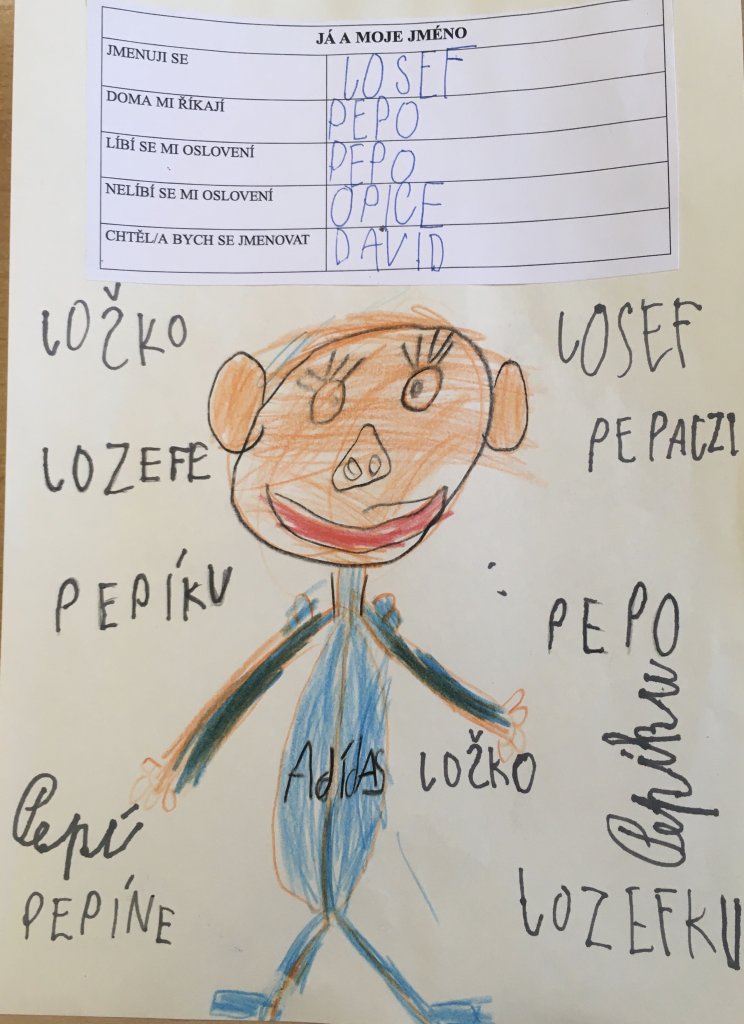 JÁ A MOJE JMÉNO
JMENUJI SE JOSEF
DOMA MI ŘÍKAJÍ PEPO
LÍBÍ SE MI OSLOVENÍ PEPO
NELÍBÍ SE MI OSLOVENÍ OPICE
CHTĚL/A BYCH SE JMENOVAT DAVID
JOŽKO
JOSEF
JOZEFE
PEPÍKU
PEPO
Pepíku
Adidas
JOŽKO
Pepi
PEPÍNE
JOZEFKU